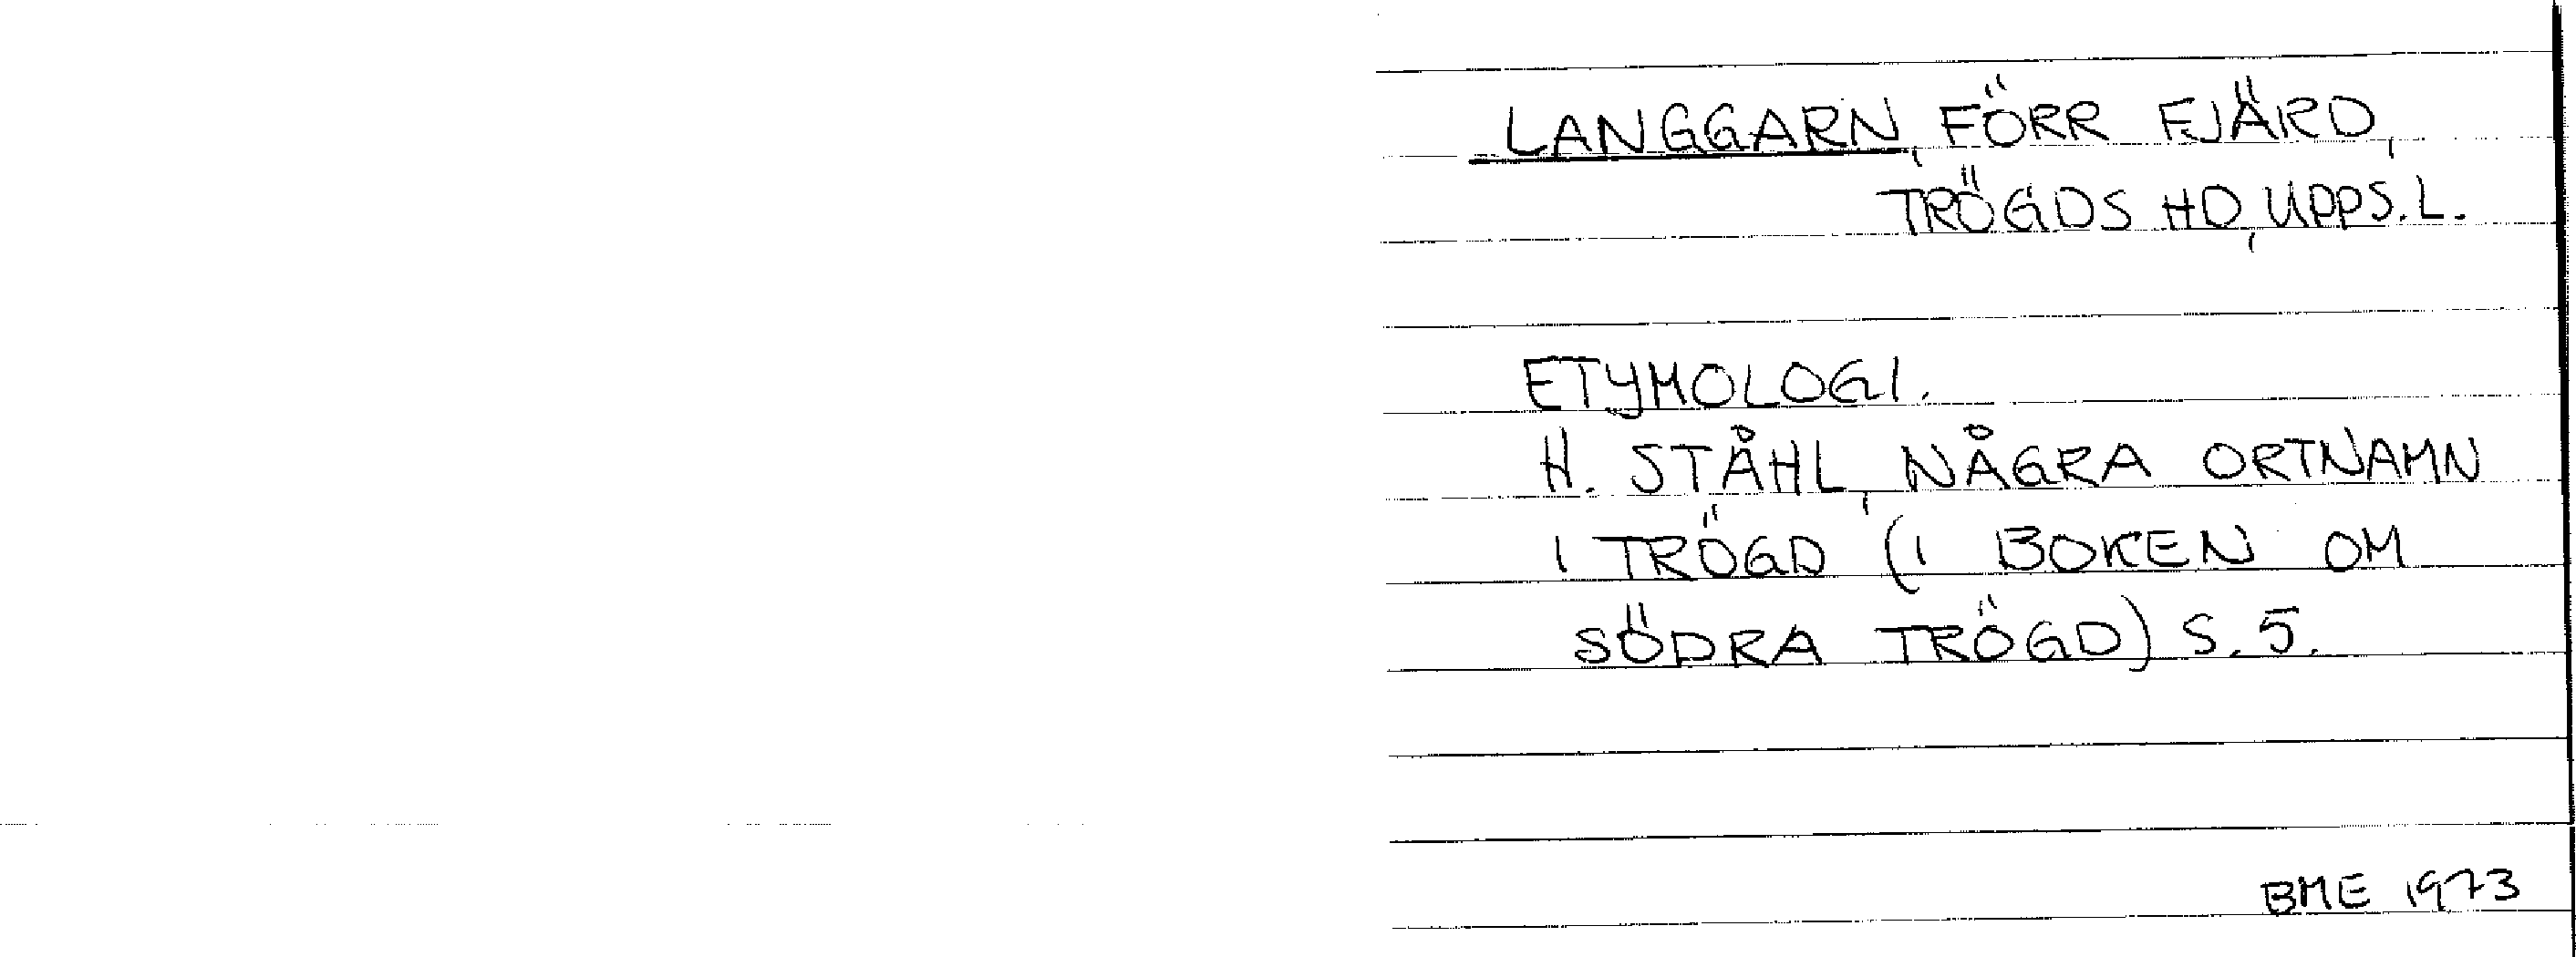 LANGGARN, FÖRR FJÄRD,
TRÖGDS HD, UPPS. L.
ETYMOLOGI.
H. STÅHL, NÅGRA ORTNAMN
I TRÖGD (I BOKEN OM
SÖDRA TRÖGD) S. 5.
BME 1973